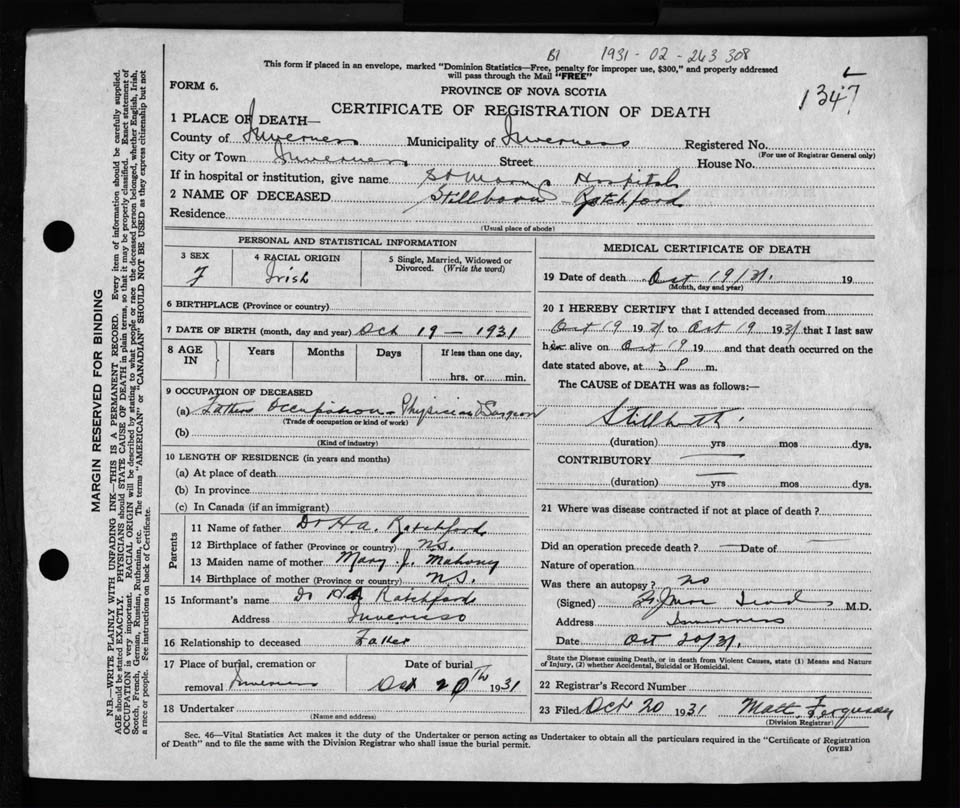 B1 1931-02-263 308
This form if placed in an envelope, marked "Dominion Statistics—Free, penalty for improper use, $300," and properly addressed
will pass through the Mail "FREE"
1347
FORM 6.
PROVINCE OF NOVA SCOTIA
CERTIFICATE OF REGISTRATION OF DEATH
1 PLACE OF DEATH—
County of Inverness Municipality of Inverness Registered No.
(For use of Registrar General only)
City or Town Inverness Street House No.
If in hospital or institution, give name St Marys Hospital
2 NAME OF DECEASED Stillborn Ratchford
Residence
(Usual place of abode)
PERSONAL AND STATISTICAL INFORMATION
3 SEX 4 RACIAL ORIGIN 5 Single, Married, Widowed or
Divorced. (Write the word)
F Irish
6 BIRTHPLACE (Province or country)
7 DATE OF BIRTH (month, day and year) Oct 19 - 1931
8 AGE IN Years Months Days If less than one day,
hrs. or min.
9 OCCUPATION OF DECEASED
(a) Fathers Occupation - Physician & Surgeon
(Trade of occupation or kind of work)
(b)
(Kind of industry)
10 LENGTH OF RESIDENCE (in years and months)
(a) At place of death
(b) In province
(c) In Canada (if an immigrant)
Parents
11 Name of father Dr H A. Ratchford
12 Birthplace of father (Province or country) N.S.
13 Maiden name of mother Mary J. Mahony
14 Birthplace of mother (Province or country) N.S.
15 Informant's name Dr H A Ratchford
Address Inverness
16 Relationship to deceased Father
17 Place of burial, cremation or Date of burial
removal Inverness Oct 20th 1931
18 Undertaker
(Name and address)
MEDICAL CERTIFICATE OF DEATH
19 Date of death Oct 19/31. 19
(Month, day and year)
20 I HEREBY CERTIFY that I attended deceased from
Oct 19 1931 to Oct 19 1931 that I last saw
her alive on Oct 19 19 and that death occurred on the
date stated above, at 3 P m.
The CAUSE of DEATH was as follows:—
Stillbirth
(duration) yrs mos dys.
CONTRIBUTORY —
(duration) — yrs mos dys.
21 Where was disease contracted if not at place of death?
Did an operation precede death? — Date of —
Nature of operation
Was there an autopsy? no
(Signed) M.D.
Address Inverness
Date Oct 20/31.
State the Disease causing Death, or in death from Violent Causes, state (1) Means and Nature
of Injury, (2) whether Accidental, Suicidal or Homicidal.
22 Registrar's Record Number
23 Filed Oct 20 1931 Matt. Ferguson
(Division Registrar)
Sec. 46—Vital Statistics Act makes it the duty of the Undertaker or person acting as Undertaker to obtain all the particulars required in the "Certificate of Registration
of Death" and to file the same with the Division Registrar who shall issue the burial permit.
(OVER)
MARGIN RESERVED FOR BINDING
N.B.—WRITE PLAINLY WITH UNFADING INK—THIS IS A PERMANENT RECORD. Every item of information should be carefully supplied.
AGE should be stated EXACTLY. PHYSICIANS should STATE CAUSE OF DEATH in plain terms, so that it may be properly classified. Exact statement of
OCCUPATION is very important. RACIAL ORIGIN will be described by stating to what people or race the deceased person belonged, whether English, Irish,
Scotch, French, German, Russian, Ruthenian, etc. The terms "AMERICAN" or "CANADIAN" SHOULD NOT BE USED as they express citizenship but not
a race or people. See instructions on back of Certificate.